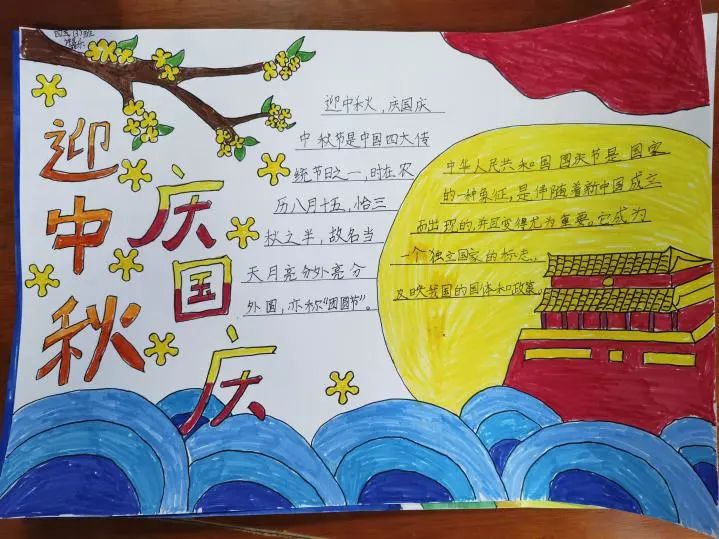 迎中秋
庆国庆
迎中秋,庆国庆
中秋节是中国四大传
统节日之一,时在农
历八月十五,恰三
秋之半,故名当
天月亮分外亮分
外圆,亦称“团圆节”。
中华人民共和国国庆节是国家
的一种象征,是伴随着新中国成立
而出现的,并且变得尤为重要。它成为
一个独立国家的标志,
反映我国的国体和政策。